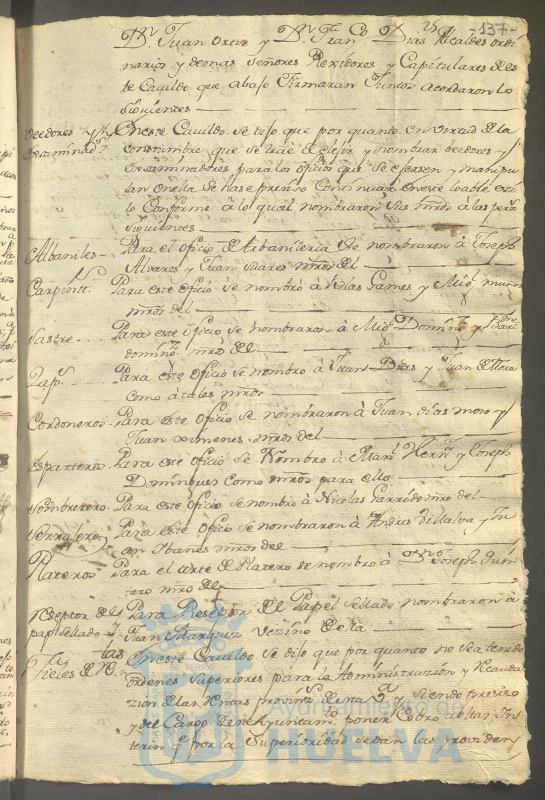 -137-
Dn. Juan Orta y Dn. Franco. Diaz Alcaldes ordi
narios y demas Señores Rexidores y Capitulares de es
te Cavildo que abajo firmaran Juntos acordaron lo
siguiente
Veedores y
Examinads. En este Cavildo se dijo que por quanto en virtud de la
costumbre que se trae de elejir y nombrar beedores y
Examinadores para los oficios que se ejersen y manipu
lan en ella se hase presiso Continuar en este loable esti
lo Conforme à lo qual nombraron sus mrds à las pers.
siguientes
Albañiles Para el oficio de Arbañileria se nombraron à Joseph
Alvares y Juan Suares mros del
Carpintt. Para este oficio se nombrò à Blas Games y Migl. muños
mros del
Sastre Para este oficio se nombraron à Migl. Doming. y
doming. mros del
Zap. Para este oficio se nombro à Juan Dias y Juan de Mora
como à tales mros
Cordoneros Para este oficio se nombraron à Juan dias moro y
Juan ximenes mros del
Esparteria Para este oficio se Nombro à Man. Hern. y Joseph
Dominguez como mros para ello
Sombrerero Para este oficio se nombro à Nicolas Garrido mro del
Serrajero Para este oficio se nombraron à Andres Villalva y Ju
an Ibanes mros del
Plateros Para el arte de Platero se nombro à Joseph Quin
tero mro del
Reseptor del
pap. sellado Para Reseptor del Papel Sellado nombraron à
Juan Marquez Vezino de la
Fieles de Rtas En este Cavildo se dijo que por quanto no se a tenido
ordenes superiores para la Administrazion y Recauda
zion de las Rentas provinz. de esta y siendo preciso
y del Cargo de este Ayuntam. poner Cobro a ellas In
terin q por la Superioridad se dan las providen
Ayuntamiento de
HUELVA